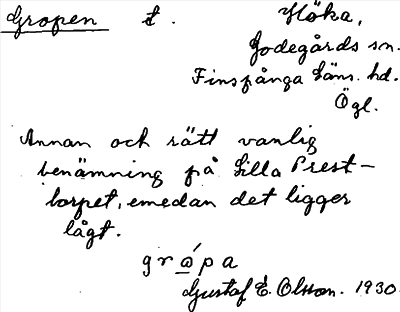 Gropen t. Höka,
Godegårds sn.
Finspånga läns. hd.
Ögl.
Annan och rätt vanlig
benämning på Lilla Prest-
torpet, emedan det ligger
lågt.
grópa
Gustaf E. Olsson. 1930.